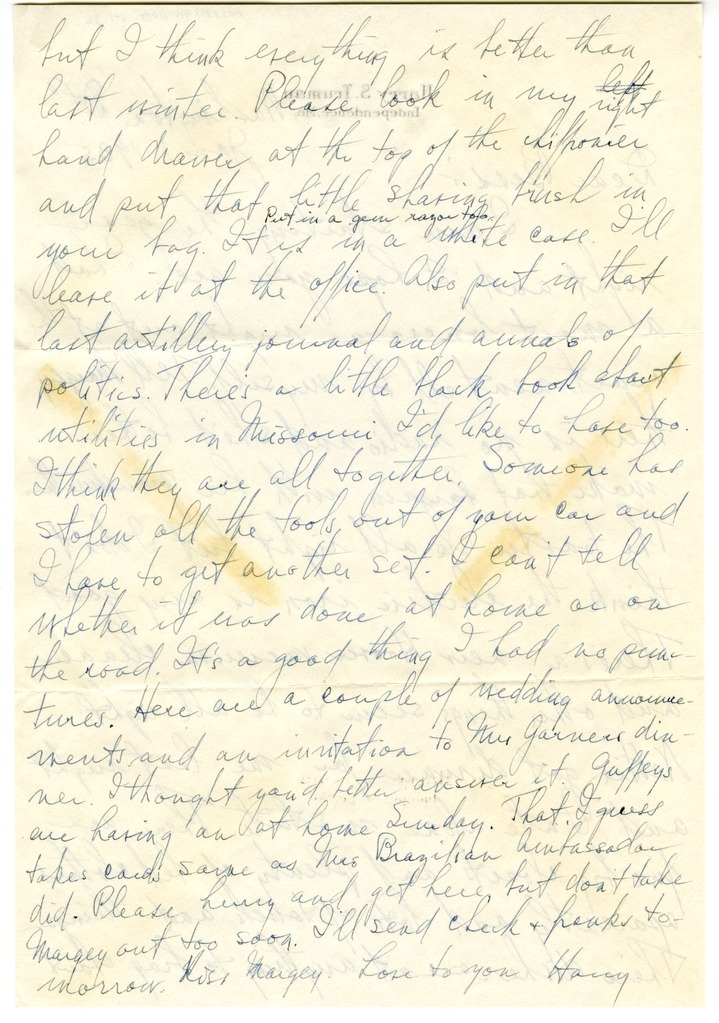 but I think everything is better than
last winter. Please look in my left right
hand drawer at the top of the chiffonier
and put that little shaving brush in
Put in a gem razor top.
your bag. It is in a white case. I'll
leave it at the office. Also put in that
last artillery journal and annals of
politics. There's a little black book about
utilities in Missouri I'd like to have too.
I think they are all together. Someone has
stolen all the tools out of your car and
I have to get another set. I can't tell
whether it was done at home or on
the road. It's a good thing I had no punc-
tures. Here are a couple of wedding announce-
ments and an invitation to Mrs Garners din-
ner. I thought you'd better answer it. Guffeys
are having an at home Sunday. That I guess
takes cards same as Mrs Brazilian Ambassador
did. Please hurry and get here but don't take
Margey out too soon. I'll send check + franks to-
morrow. Kiss Margey. Love to you Harry
Harry S. Truman
Independence, Mo.